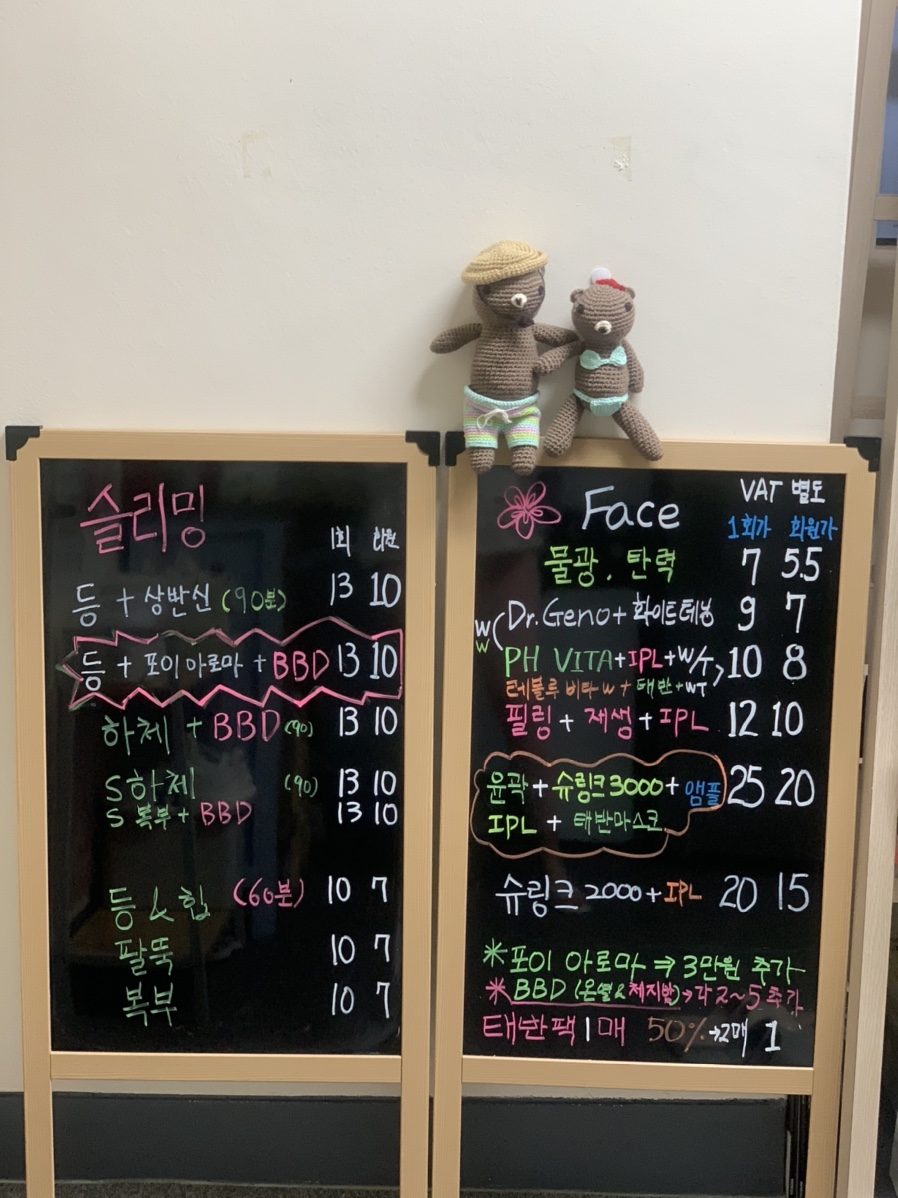 슬리밍
1회 회원
등 + 상반신 (90분) 13 10
등 + 포이아로마 + BBD 13 10
하체 + BBD (90) 13 10
S하체 (90) 13 10
S 복부 + BBD 13 10
등 & 힙 (60분) 10 7
팔뚝 10 7
복부 10 7
Face VAT 별도
1회가 회원가
물광 . 탄력 7 5.5
Dr.Geno + 화이트테닝 9 7
W
W
PH VITA + IPL + W/T 10 8
레볼루 비타 W + 태반 + WT
필링 + 재생 + IPL 12 10
윤곽 + 슈링크 3000 + 앰플 25 20
IPL + 태반마스크
슈링크 2000 + IPL 20 15
* 포이 아로마 ⇒ 3만원 추가
* BBD (온열 & 체지방) → 각 2~5 추가
태반팩 1매 50% → 2매 1